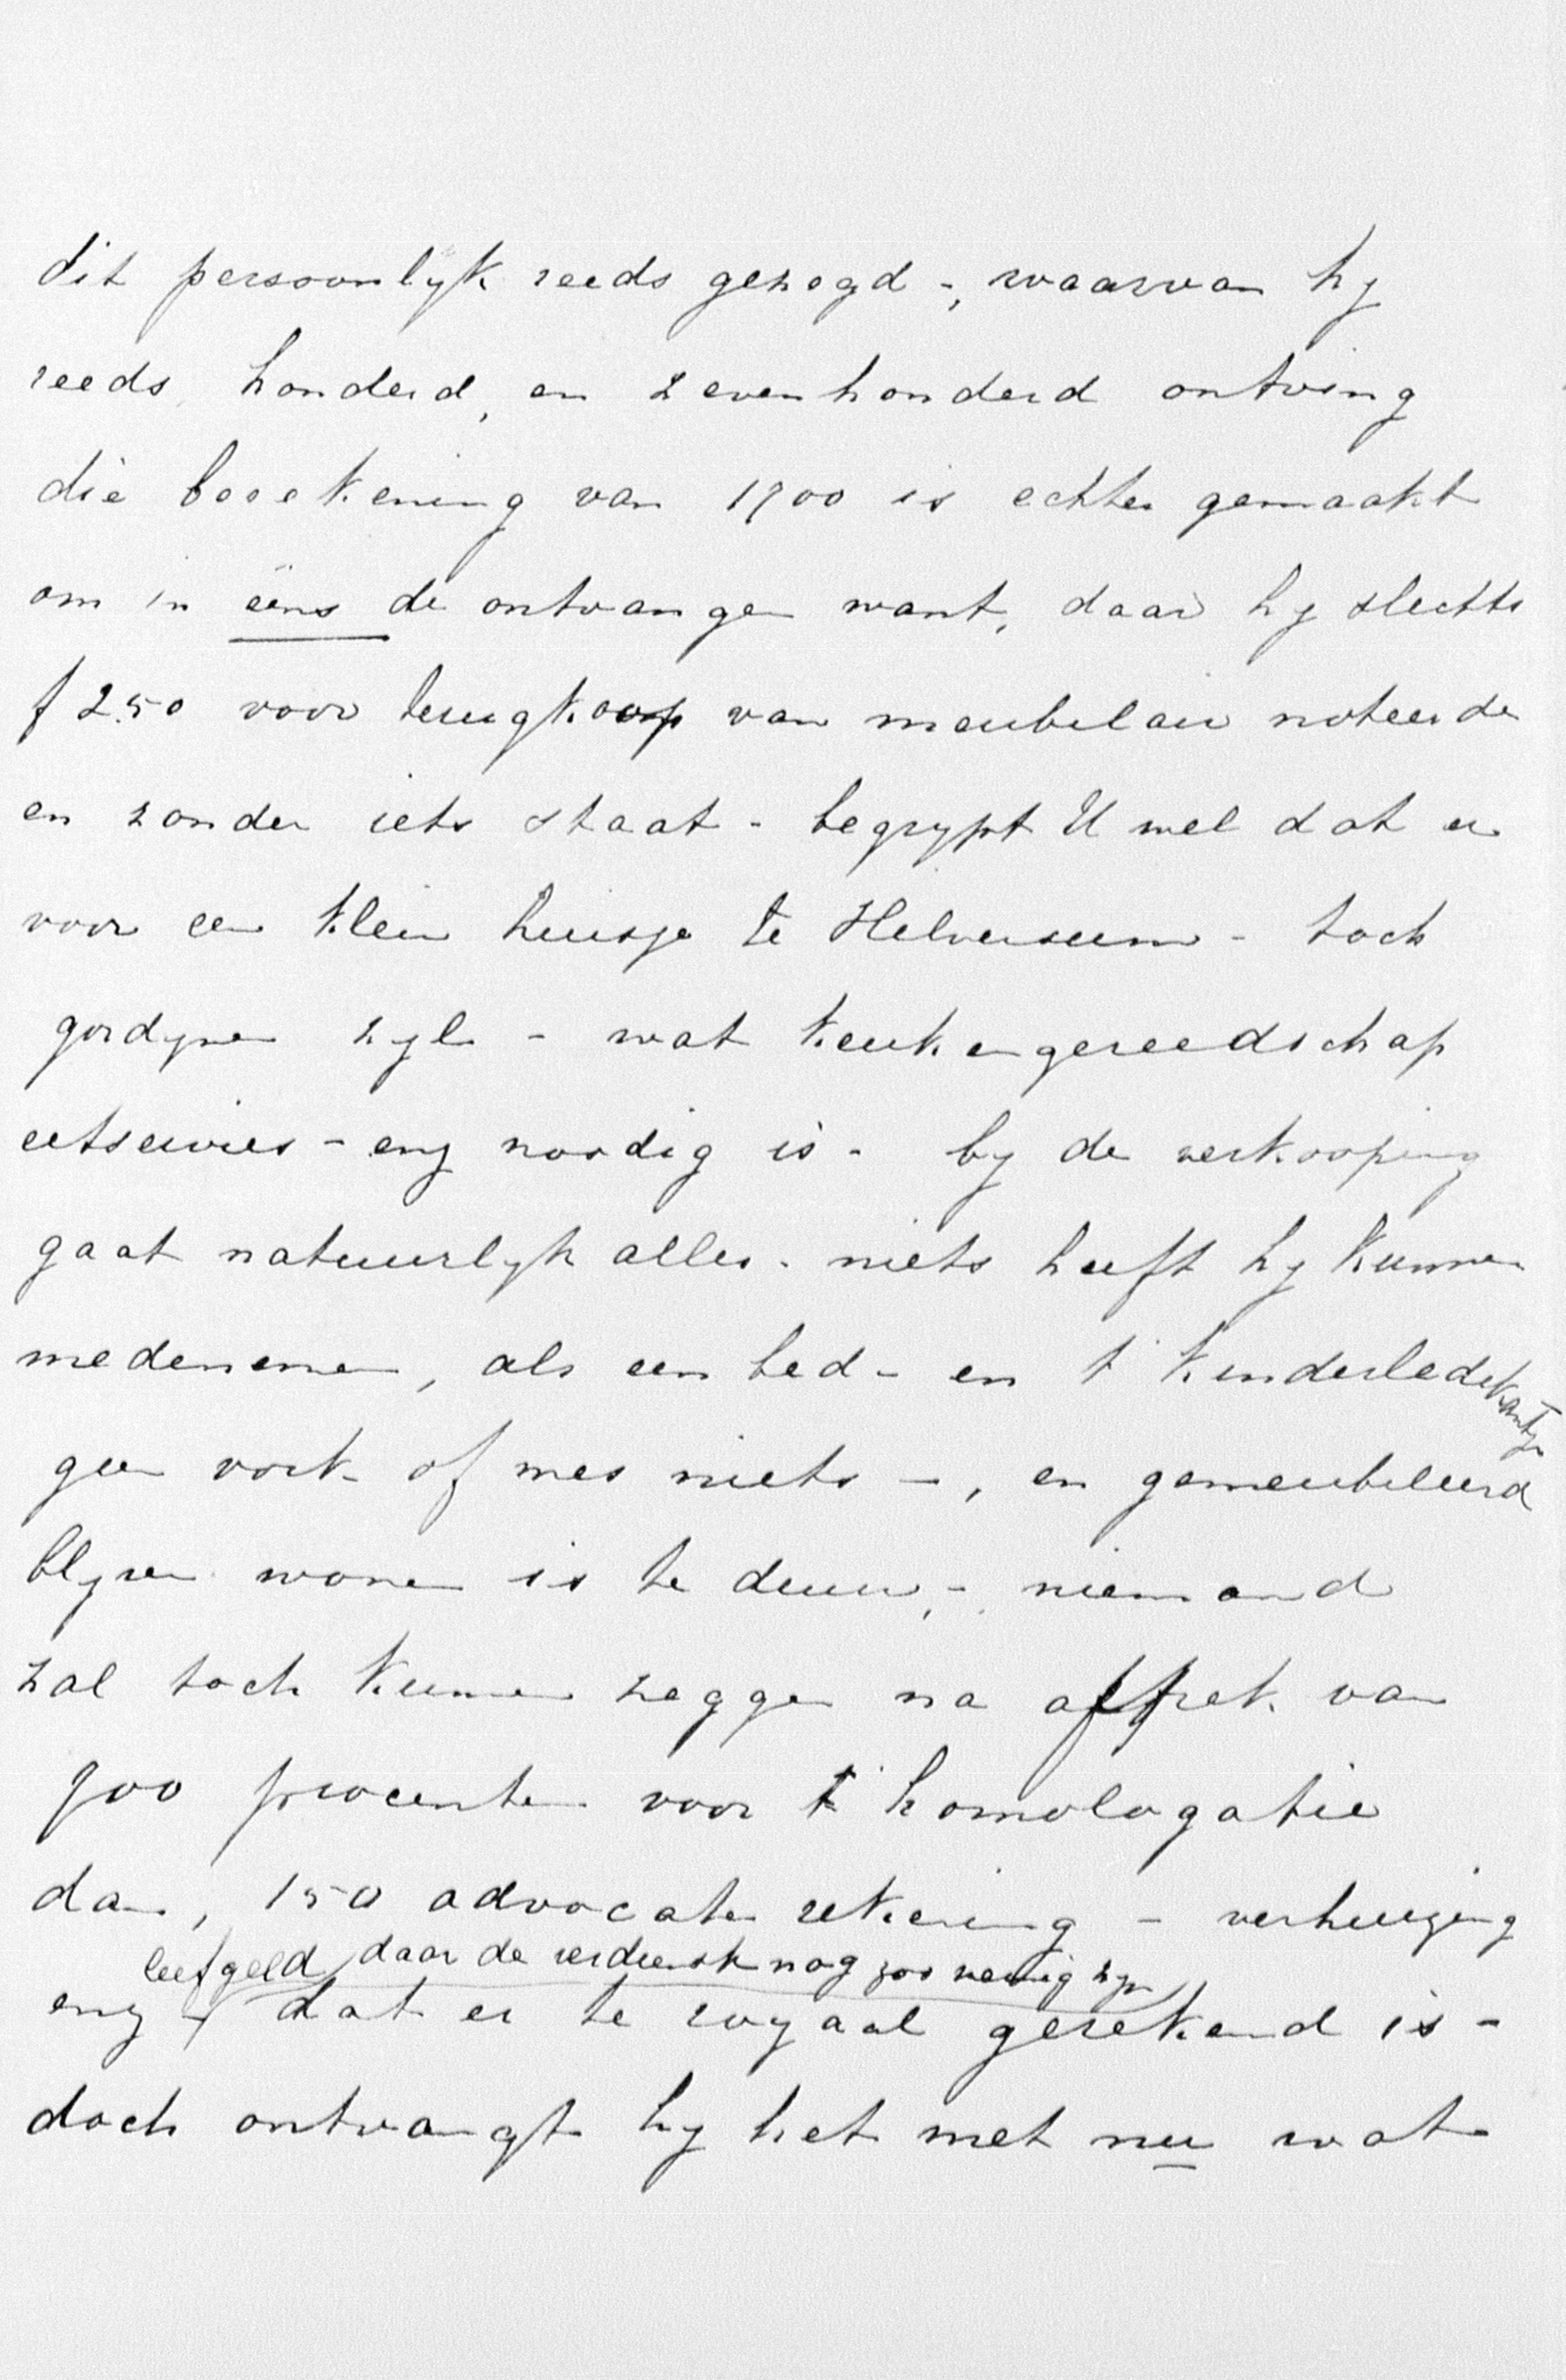 dit persoonlijk reeds gezegd -, waarvan hy
reeds honderd, en zevenhonderd ontving
die berekening van 1900 is echter gemaakt
om in ééns de ontvangen want, daar hy slechts
f 250 voor terugkoop van meubelair noteerde
en zonder iets staat - begrypt U wel dat er
voor een klein huisje te Hilversum - toch
gordynen zyl - wat keukengereedschap
eetservies - enz noodig is - by de verkooping
gaat natuurlyk alles. niets heeft hy kunnen
medenemen, als een bed - en t kinderledekantje
geen vork of mes niets -, en gemeubileerd
blyven wonen is te duur, - niemand
zal toch kunnen zeggen na aftrek van
900 procenten voor t homologatie
dan, 150 advocaten rekening - verhuizing
leefgeld, daar de verdienste nog zoo weinig zyn
enz dat er te royaal gerekend is -
doch ontvangt hy het met nu wat